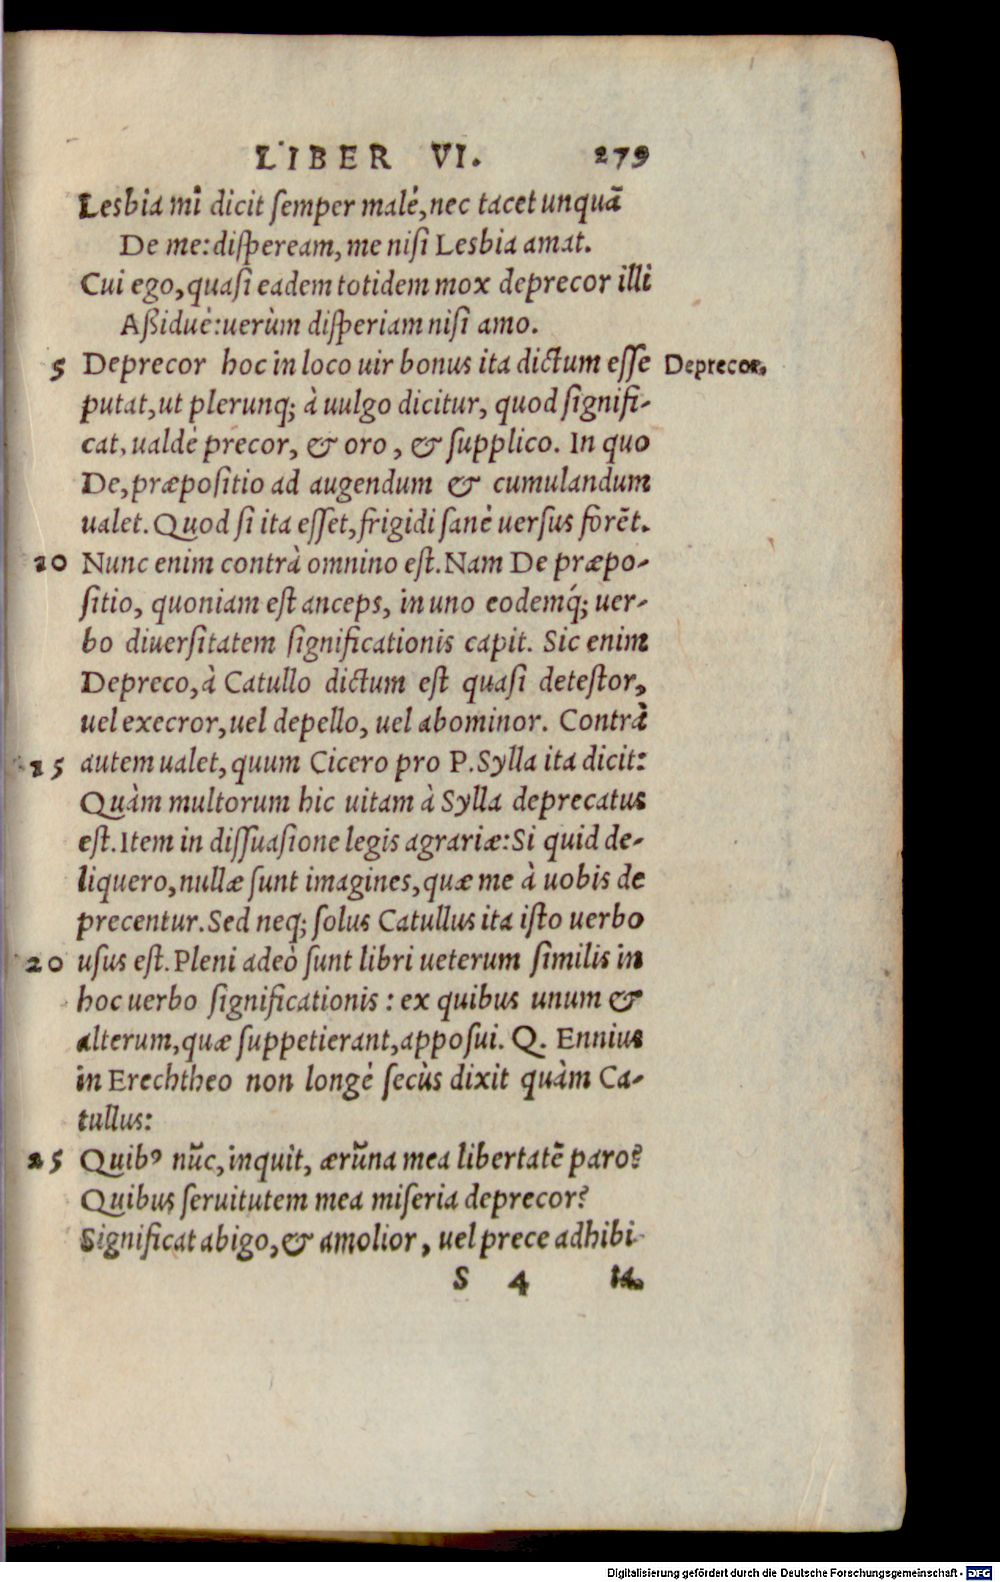 LIBER VI. 279
Lesbia mî dicit ſemper malè, nec tacet unquā
De me: diſpeream, me niſi Lesbia amat.
Cui ego, quaſi eadem totidem mox deprecor illi
Aßiduè: uerùm diſperiam niſi amo.
5 Deprecor hoc in loco uir bonus ita dictum eſſe Deprecor.
putat, ut plerunq; à uulgo dicitur, quod ſignifi-
cat, ualdè precor, & oro, & ſupplico. In quo
De, præpoſitio ad augendum & cumulandum
ualet. Quod ſi ita eſſet, frigidi ſanè uerſus forēt.
10 Nunc enim contrà omnino eſt. Nam De præpo-
ſitio, quoniam eſt anceps, in uno eodemq́; uer-
bo diuerſitatem ſignificationis capit. Sic enim
Depreco, à Catullo dictum eſt quaſi deteſtor,
uel execror, uel depello, uel abominor. Contrà
15 autem ualet, quum Cicero pro P. Sylla ita dicit:
Quàm multorum hic uitam à Sylla deprecatus
eſt. Item in diſſuaſione legis agrariæ: Si quid de-
liquero, nullæ ſunt imagines, quæ me à uobis de
precentur. Sed neq; ſolus Catullus ita iſto uerbo
20 uſus eſt. Pleni adeò ſunt libri ueterum ſimilis in
hoc uerbo ſignificationis: ex quibus unum &
alterum, quæ ſuppetierant, appoſui. Q. Ennius
in Erechtheo non longè ſecùs dixit quàm Ca-
tullus:
25 Quibꝰ nūc, inquit, ærūna mea libertatē paro?
Quibus ſeruitutem mea miſeria deprecor?
Significat abigo, & amolior, uel prece adhibi-
S 4 ta.
Digitalisierung gefördert durch die Deutsche Forschungsgemeinschaft - DFG